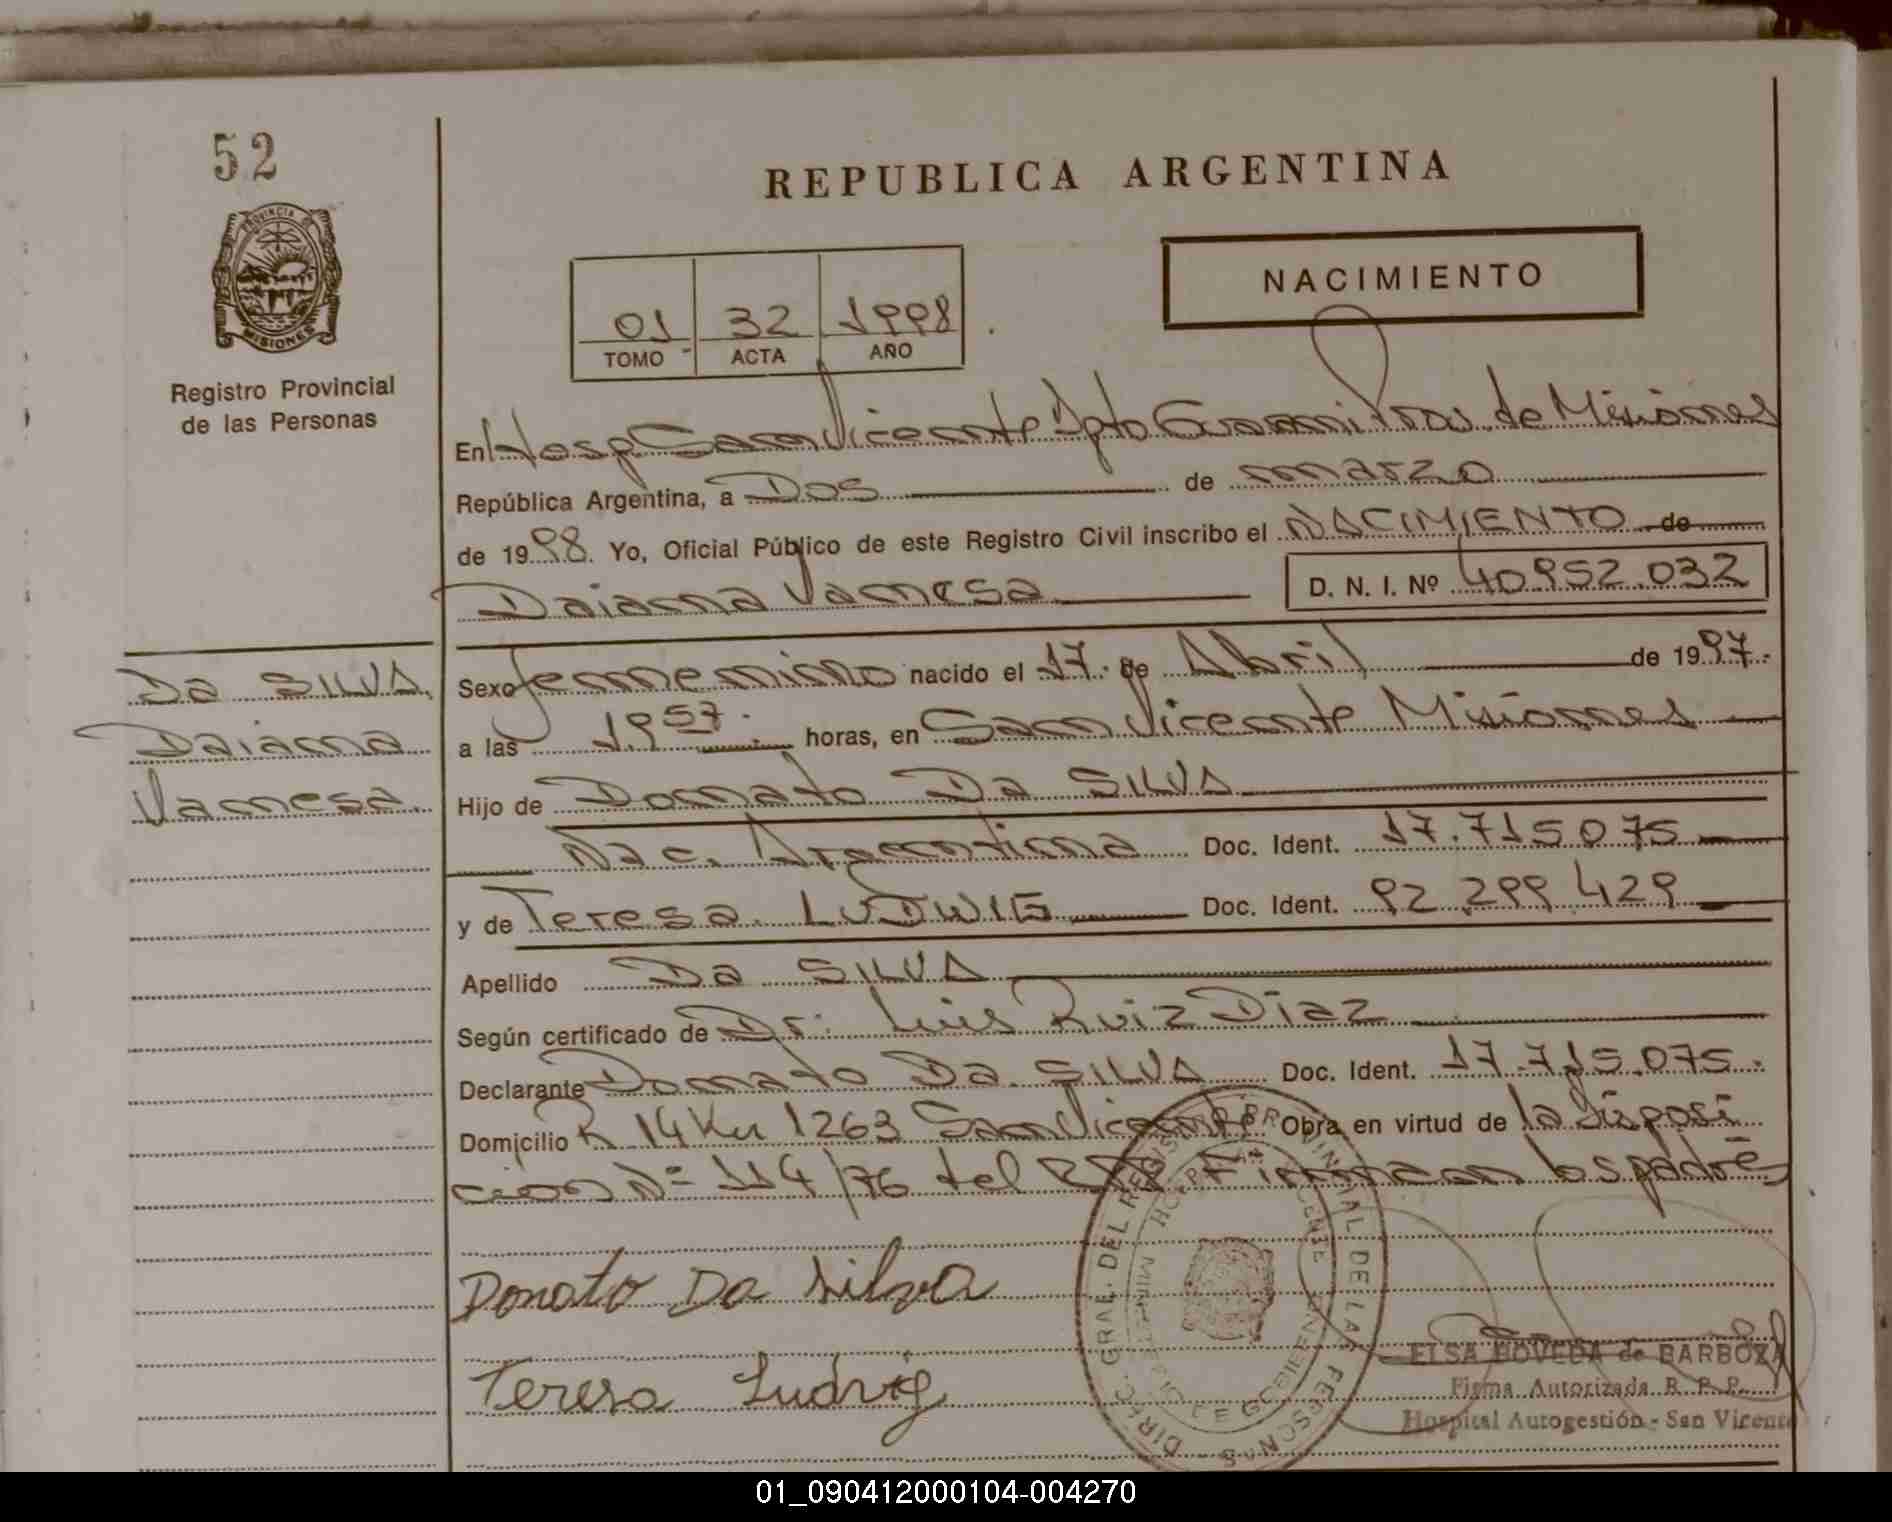 52
REPUBLICA ARGENTINA
PROVINCIA DE MISIONES
Registro Provincial
de las Personas
01 32 1998
TOMO ACTA AÑO
NACIMIENTO
En Hosp San Vicente Dpto Guaraní Prov. de Misiones
República Argentina, a Dos de marzo
de 1998. Yo, Oficial Público de este Registro Civil inscribo el NACIMIENTO de
Daiana Vanesa D. N. I. Nº 40952.032
DA SILVA,
Daiana
Vanesa.
Sexo femenino nacido el 17. de Abril de 1997.
a las 19 57. horas, en San Vicente Misiones
Hijo de Donato Da SILVA
Nac. Argentina Doc. Ident. 17.715.075
y de Teresa LUDWIG Doc. Ident. 92.299.429
Apellido Da SILVA
Según certificado de Dr. Luis Ruiz Díaz
Declarante Donato Da SILVA Doc. Ident. 17.715.075.
Domicilio R 14 Km 1263 San Vicente Obra en virtud de la Disposi
cion Nº 114/76 del RPP Firman los padres
Donato Da Silva
Teresa Ludvig
DIREC. GRAL. DEL REGISTRO PROVINCIAL DE LAS PERSONAS
MINISTERIO DE GOBIERNO
ELSA BOVEDA de BARBOZA
Firma Autorizada R. P. P.
Hospital Autogestión - San Vicente
01_090412000104-004270